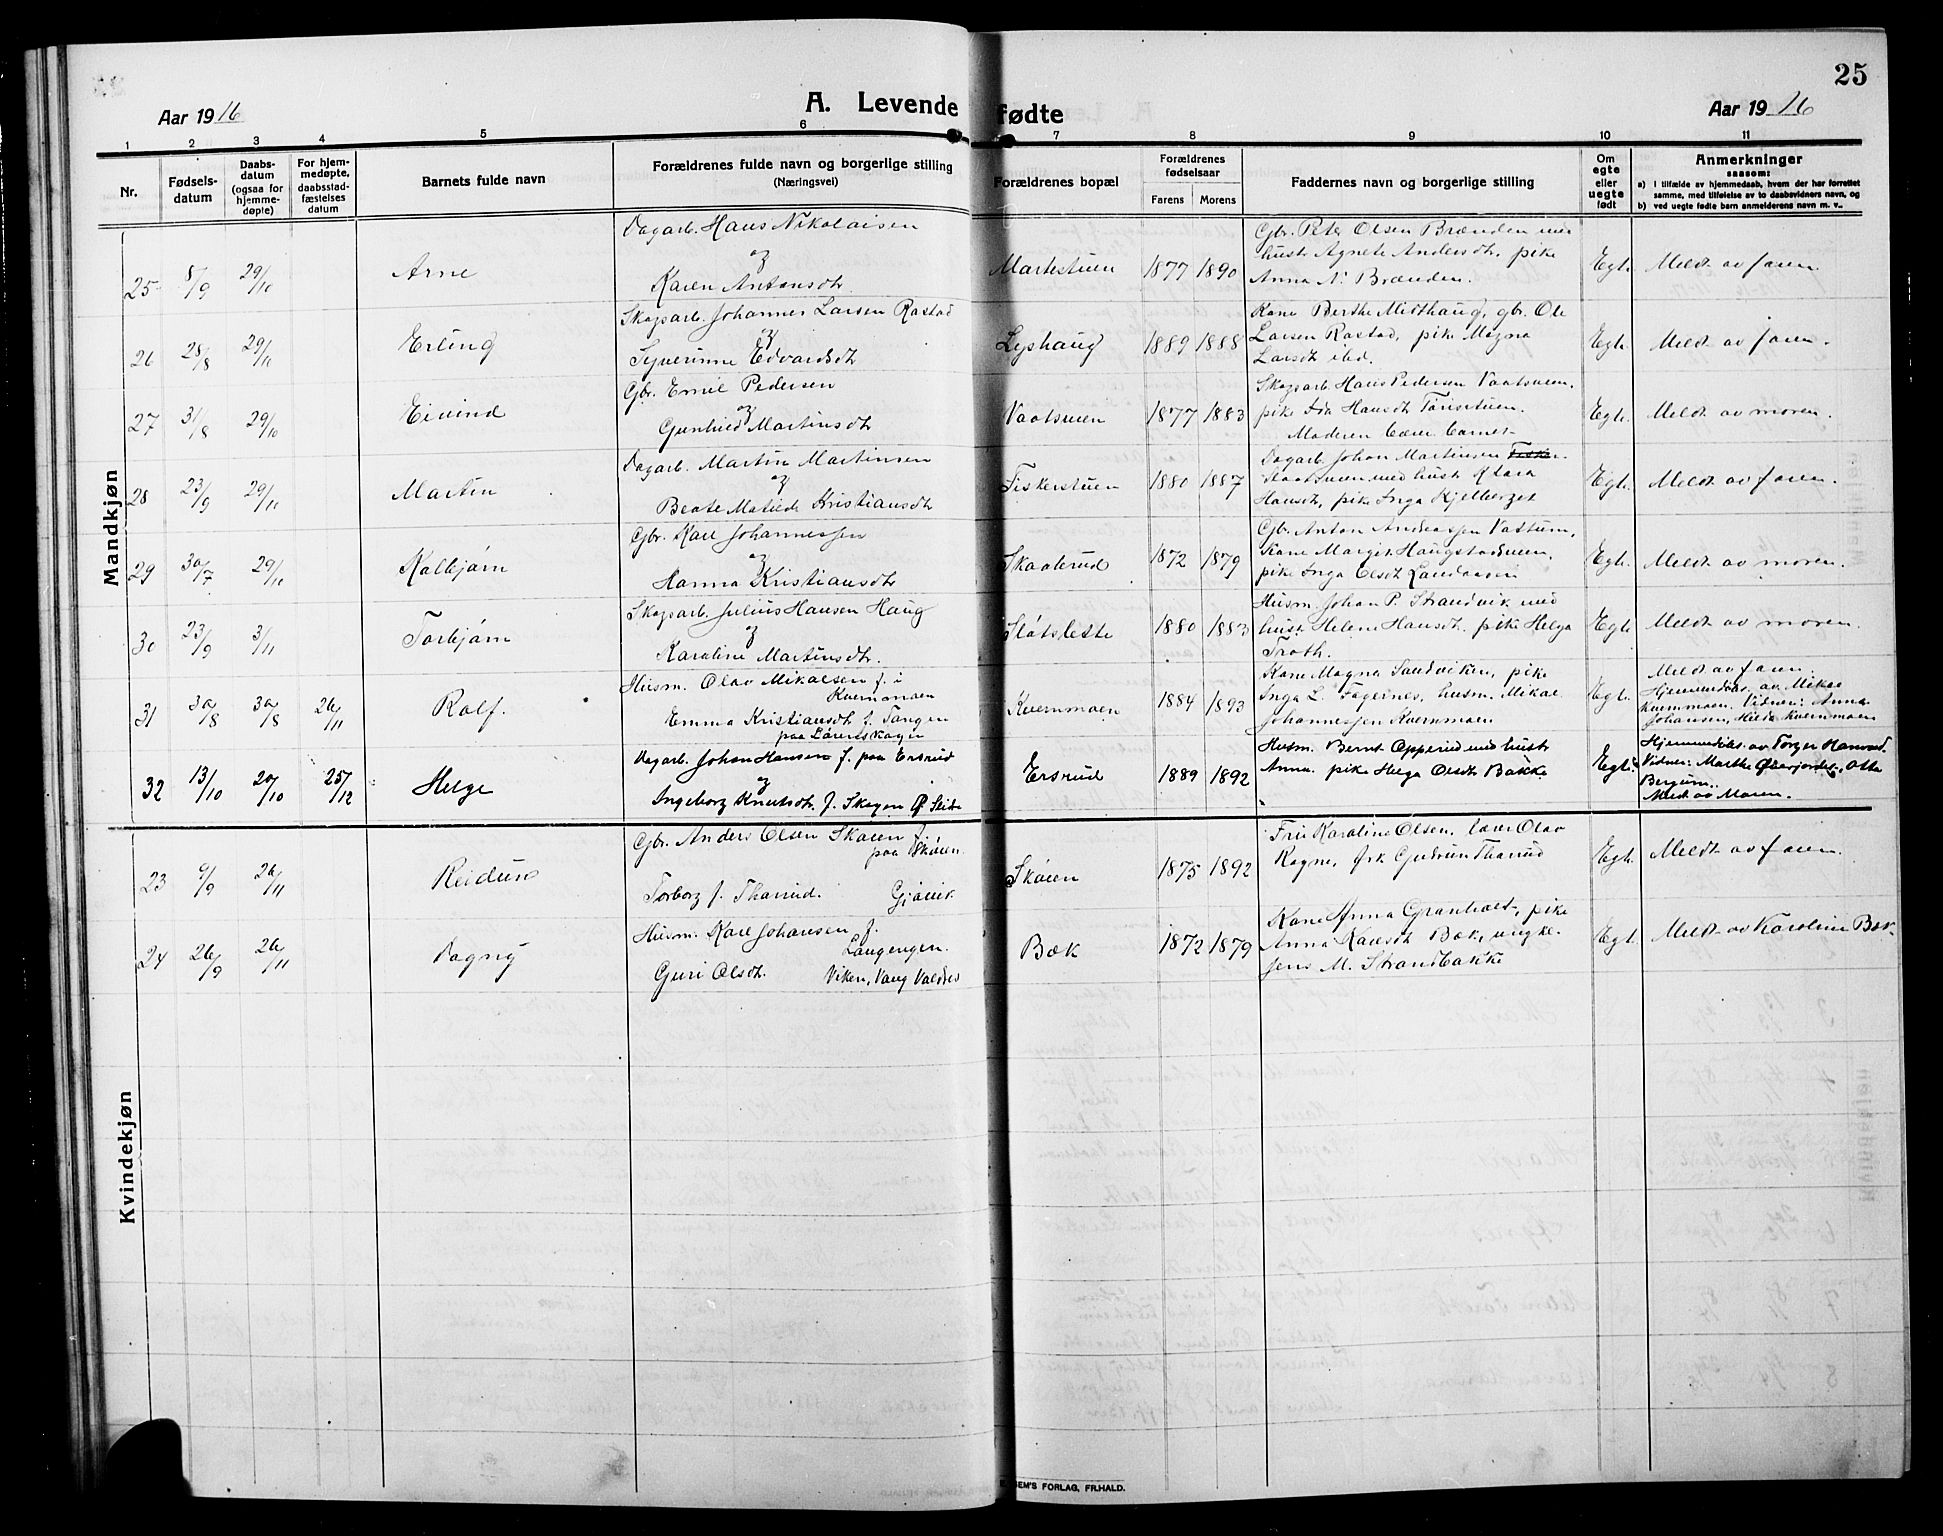 25
Aar 1916 A. Levende fødte Aar 1916
1 2 3 4 5 6 7 8 9 10 11
Nr.
Fødsels-
datum
Daabs-
datum
(ogsaa for
hjemme-
døpte)
For hjem-
medøpte,
daabsstad-
fæstelses
datum
Barnets fulde navn
Forældrenes fulde navn og borgerlige stilling
(Næringsvei)
Forældrenes bopæl
Forældrenes
fødselsaar
Farens Morens
Faddernes navn og borgerlige stilling
Om
egte
eller
uegte
født
Anmerkninger
saasom:
a) I tilfælde av hjemmedaab, hvem der har forrettet
samme, med tilføielse av to daabsvidners navn, og
b) ved uegte fødte barn anmelderens navn m. v..
Mandkjøn
25 8/9 29/10 Arne
Dagarb. Hans Nikolaisen
og
Karen Antonsdtr
Martestuen 1877 1890
Gbr. Peter Olsen Brænden med
hustr Agnete Andersdtr, pike
Anna N. Brænden.
Egte. Meldt av faren.
26 28/8 29/10 Erling
Skogsarb. Johannes Larsen Rastad
og
Syverinne Edvardsdtr
Lyshaug 1889 1888
Kone Berthe Midthaug, gbr. Ole
Larsen Rastad, pike Magna
Larsdtr ibd.
Egte. Meldt av faren.
27 31/8 29/10 Eivind
Gbr. Emil Pedersen
og
Gunhild Martinsdtr
Vaatsveen 1877 1883
Skogsarb. Hans Pedersen Vaatsveen,
pike Ida Hansdtr Tønsetuen.
Moderen bærer barnet
Egte. Meldt av moren.
28 23/9 29/10 Martin
Dagarb. Martin Martinsen
og
Beate Matilde Kristiansdtr
Fiskerstuen 1880 1887
Dagarb. Johan Martinsen
Slaatsveen med hustr Klara
Hansdtr, pike Inga Kjelberget
Egte. Meldt av faren.
29 30/7 29/10 Kolbjørn
Gbr. Karl Johannessen
og
Hanna Kristiansdtr
Skaalerud 1872 1879
Gbr. Anton Andreassen Vastum,
Kone Margit Haugstadsveen,
pike Inga Olsdtr Landaasen
Egte. Meldt av moren.
30 23/9 3/11 Torbjørn
Skogsarb. Julius Hansen Haug
og
Karoline Martinsdtr.
Slåtslette 1880 1883
Husm. Johan P. Strandvik med
hustr. Helene Hansdtr. pike Helga
Troth.
Egte Meldt av moren.
31 30/8 30/8 26/11 Rolf.
Husm. Olav Mikalsen f. i
Kvernmoen
Emma Kristiansdtr f. Tangen
paa Lørenskogen
Kvernmoen 1884 1893
Kone Magna Sandviken, pike
Inga L. Fagernes, husm. Mikal
Johannessen Kvernmoen
Egte. Meldt av faren.
Hjemmedøbt av Mikal
Kvernmoen. Vidner: Anna
Johansen, Hilda Kvernmoen
32 13/10 20/10 25/12 Helge
Dagarb. Johan Hansen f. paa Ersrud
og
Ingeborg Knutsdtr. f. Skogen Ø. Slidre
Ersrud 1889 1892
Husm. Bernt Opperud med hustr
Anna. pike Helga Olsdtr Bakke
Egte. Hjemmedøbt av Torger Hanerud.
Vidner: Marthe Øverjordet, Otto
Bergum.
Meldt av Moren.
Kvindekjøn
23 9/9 26/11 Reidun
Gbr. Anders Olsen Skøien f.
paa Skøien
Torborg f. Tharud. Gjøvik
Skøien 1875 1892
Fru Karoline Olsen, lærer Olav
Rogne, frk Gudrun Tharud
Egte. Meldt av faren.
24 26/9 26/11 Dagny
Husm. Karl Johansen f.
Langengen.
Guri Olsdtr. Viken, Vang Valdres
Bæk 1872 1879
Kone Anna Granholt, pike
Anna Karlsdtr Bæk, ungk.
Jens M. Strandbakke
Egte. Meldt av Karoline Bæk.
FORLAG, FR.HALD.